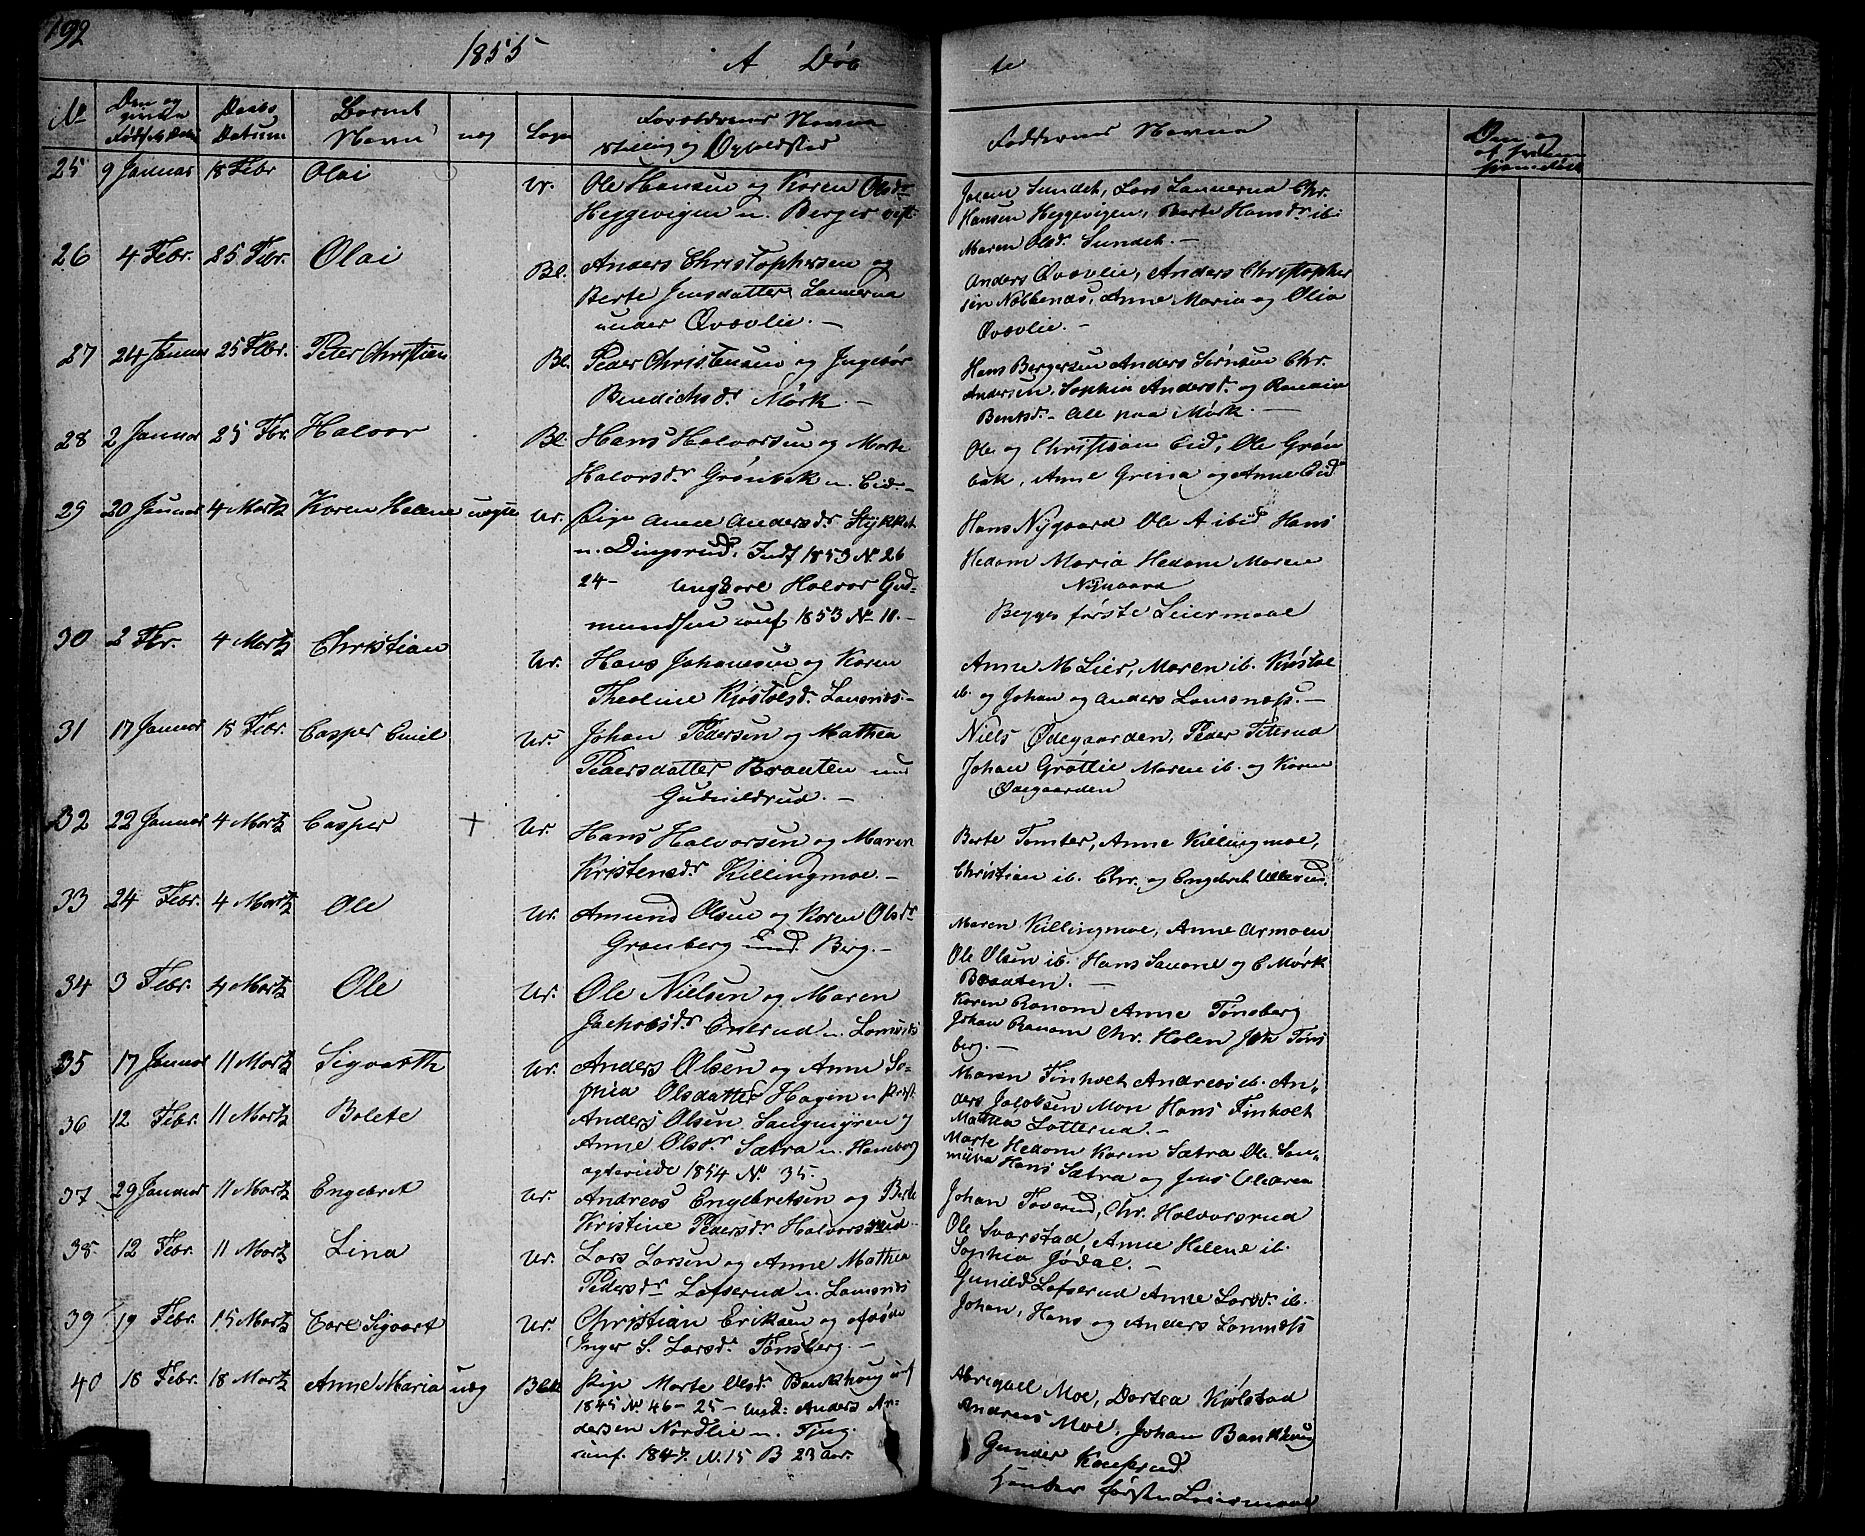 192
1855
A Døb
te
No
Den og
Fødsels Dato
Daabs
Datum
Barnet
Navn
uæg
Sogn
Forældrenes Navne
Stilling og Opholdsted
Faddernes Navne
25 9 Januar 18 Febr Olai Ur. Ole Hansen og Karen Olsdr
Heggevigen u. Berger
Sundet, Lars Lannerud Chr.
Hansen Heggevigen, Berte Hansdr ib.
Maren Olsdr Sundet. -
26 4 Febr. 25 Febr. Olai Bl. Anders Christophersen og
Berte Jensdatter Lannerud
under Qvævlie. -
Anders Qvævlie, Anders Christopher
sen Nabbenæs, Anne Maria og Olia
Qvævlie. -
27 24 Januar 25 Febr. Peter Christian Bl. Peder Christensen og Ingebor
Bendichsdr Mørk. -
Hans Bergersen Anders Sørensen Chr.
Andersen, Sophia Andersdr og
Bentsdr - Alle paa Mørk. -
28 2 Januar 25 Febr. Halvor Bl. Hans Halvorsen og Marte
Halvorsdr Grønbek u. Eid. -
Ole og Christian Eid, Ole Grøn
bæk, Anne Greina og Anne Eid
29 20 Januar 4 Martz Karen Helene uægte Ur. Pige Anne Andersdr Stykket
u. Dingsrud. Indf 1853 No 26
24 - Ungkarl Halvor Gud-
mundsen conf 1853 No 10. -
Hans Nygaard Ole A ibid Hans
Hedom Maria Hedom Maren
Nygaard
Begges første Leiermaal
30 2 Febr. 4 Martz Christian Ur. Hans Johanesen og Karen
Theoline Kjøstolsdr. Lamsnes. -
Anne M Lier, Maren ib. Kjøstol
ib. og Johan og Anders Lamsnæss. -
31 17 Januar 18 Febr. Casper Emil Ur. Johan Pedersen og Mathea
Pedersdatter Braaten und
Gudmildrud. -
Niels Ødegaarden, Peder Peterud
Johan Grøtlie Maren ib. og Karen
Ødegaarden
32 22 Januar 4 Martz Casper + Ur. Hans Halvorsen og Maren
Kristensdr Killingmoe. -
Berte Tomter, Anne Killingmoe,
Christian ib. Chr. og Engebret Ullerud.
33 24 Febr. 4 Martz Ole Ur. Amund Olsen og Karen Olsdr
Granberg und Berg. -
Maren Killingmoe, Anne Armoen
Ole Olsen ib. Hans Sauone og C Mørk
Braaten. -
34 3 Febr. 4 Martz Ole Ur. Ole Nielsen og Maren
Jachobsdr Enerud u. Lamsnes
Karen Ranom Anne Tønsberg
Johan Ranom Chr. Holen Joh Tøns
berg. -
35 17 Januar 11 Martz Sigvarth Ur. Anders Olsen og Anne So-
phia Olsdatter Hagen u Præst.
Maren Finholt Andreas ib. An-
ders Jacobsen Mon Hans Finholt
Mathea Lotterud. -
36 12 Febr. 11 Martz Bolete Anders Olsen Saugmyren og
Anne Olsdr Sætra u. Hamborg
1854 No. 35.
Marte Hedom Karen Sætra Ole Sau-
myra Hans Sætra og Jens Ulleren
37 29 Januar 11 Martz Engebret Ur. Andreas Engebretsen og Berte
Kristine Pedersdr Halvorsrud.
Johan Toverud, Chr. Halvorsrud
Ole Svarstad Anne Helene ib.
Sophia Jødal. -
38 12 Febr. 11 Martz Lina Ur. Lars Larsen og Anne Mathea
Pedersdr Lofserud u. Lamsnes
Gunild Lofserud Anne Larsdr ib.
Johan, Hans og Anders Lamnæss
39 19 Febr. 15 Martz Carl Sigvart Ur. Christian Eriksen og afdøde
Inger S. Larsdr Tønsberg. -
40 18 Febr. 18 Martz Anne Maria uæg Bl. Pige Marte Olsdr Bankhaug inf
1845 No 46 - 25 - und: Anders An-
dersen Nordlie u. Tjug.
conf. 1847. N. 15 B 23 Aar.
Abrigael Moe, Dortea Kjølstad
Andreas Moe, Johan Bankhaug
Gunder Kauserud
første Leiermaal